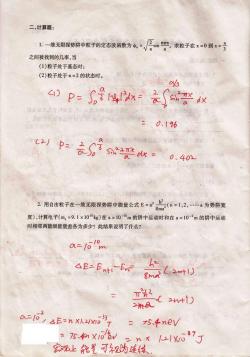 二、计算题:
1. 一维无限深势阱中粒子的定态波函数为 φₙ = √(2/a) sin(nπx/a), 求粒子在 x=0 到 x=a/3
之间被找到的几率,当
(1)粒子处于基态时;
(2)粒子处于 n=2 的状态时。
(1) P = ∫₀^(a/3) |φ|²dx = 2/a ∫₀^(a/3) sin² πx/a dx
= 0.196
(2) P = 2/a ∫₀^(a/3) sin² 2πx/a dx = 0.402
2. 用自由粒子在一维无限深势阱中能量公式 E=n² h²/8ma² (n=1,2,……a 为势阱宽
度),计算电子(mₑ=9.1×10⁻³¹kg)在 a=10⁻¹⁰m 的阱中运动时和在 a=10⁻²m 的阱中运动
时相邻两能级能量差各为多少?此结果说明了什么?
a=10⁻¹⁰m
ΔE=Eₙ₊₁-Eₙ= h²/8ma² (2n+1)
(2n+1)
a=10⁻²
= n×1.21×10⁻³⁷J
能量可视为连续.